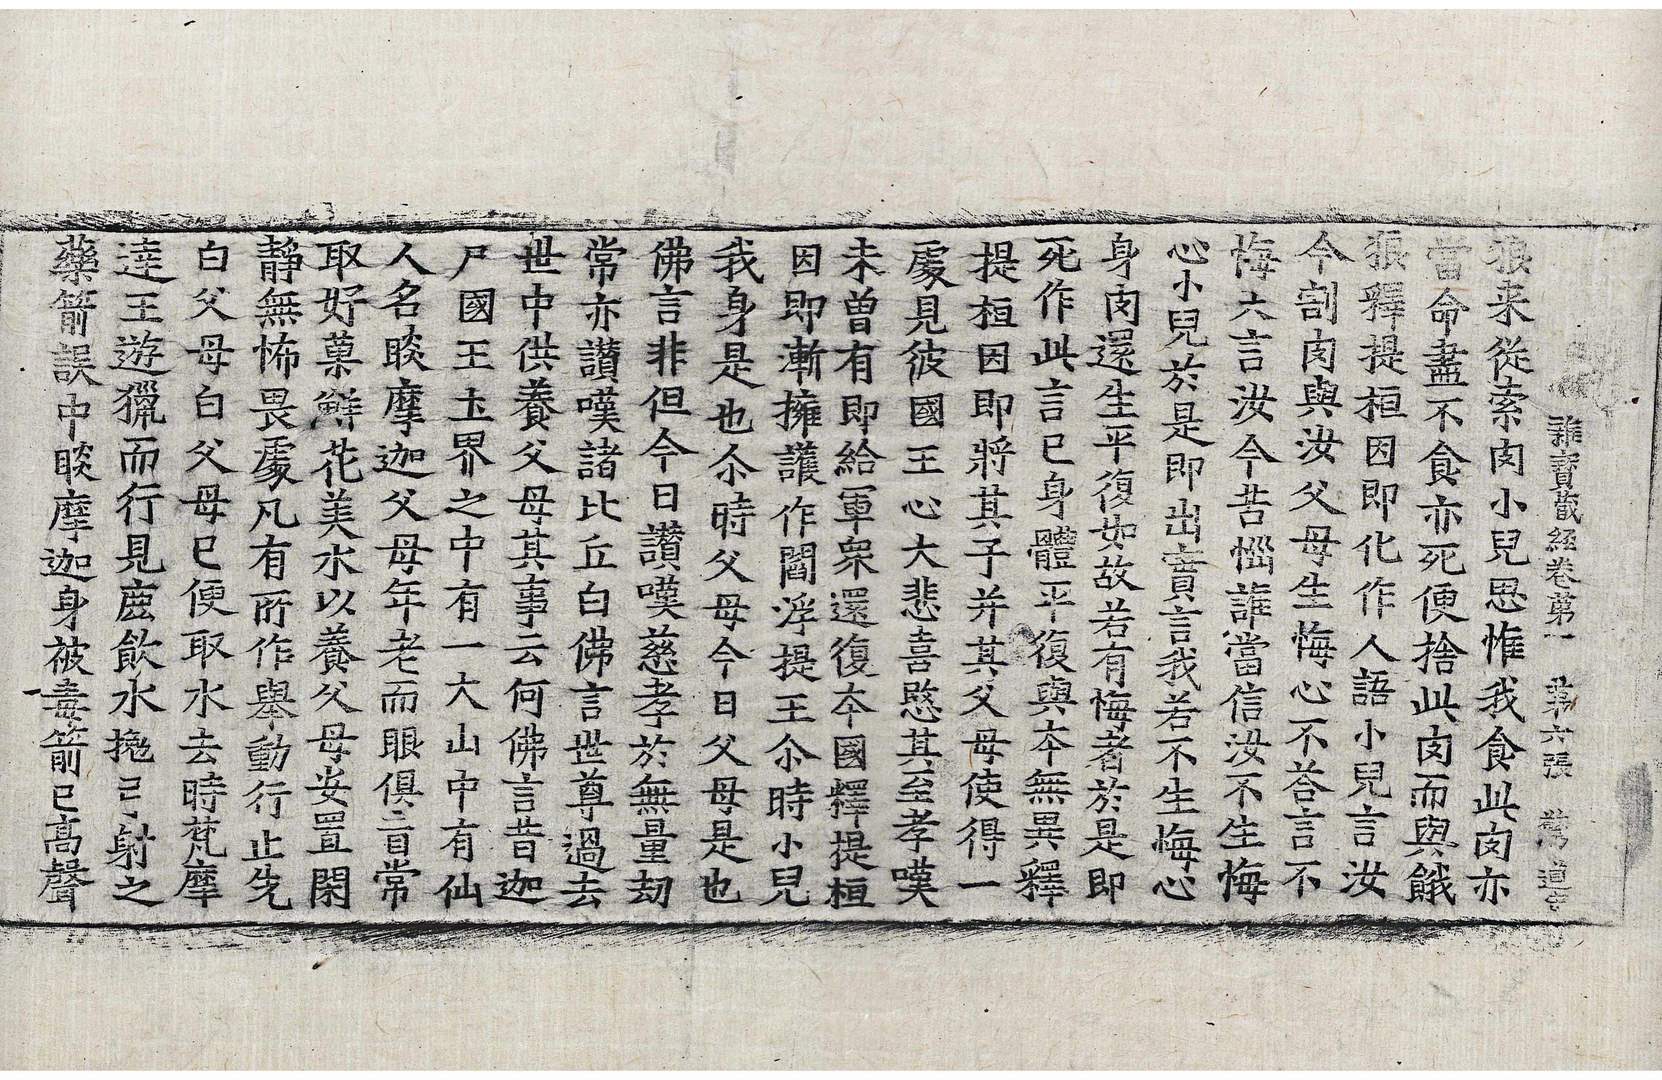 雜寶蔵經卷苐一 苐六張 驚 道
狼来從索肉小兒思惟我食此肉亦
當命盡不食亦死便捨此肉而與餓
狼釋提桓因即化作人語小兒言汝
今割肉與汝父母生悔心不荅言不
悔六言汝今苦惱誰當信汝不生悔
心小兒於是即出實言我若不生悔心
身肉還生平復如故若有悔者於是即
死作此言已身體平復與夲無異釋
提桓因即將其子并其父母使得一
處見彼國王心大悲喜愍其至孝嘆
未曾有即給軍衆還復夲國釋提桓
因即漸擁護作閻浮提王尒時小兒
我身是也尒時父母今日父母是也
佛言非但今日讃嘆慈孝於無量劫
常亦讃嘆諸比丘白佛言世尊過去
世中供養父母其事云何佛言昔迦
尸國王圡界之中有一大山中有仙
人名睒摩迦父母年老而眼俱盲常
取好菓鮮花美水以養父母安置閑
静無怖畏處凡有所作舉動行止先
白父母白父母已便取水去時梵摩
達王遊獵而行見鹿飲水挽弓射之
藥箭誤中睒摩迦身被毒箭已髙聲